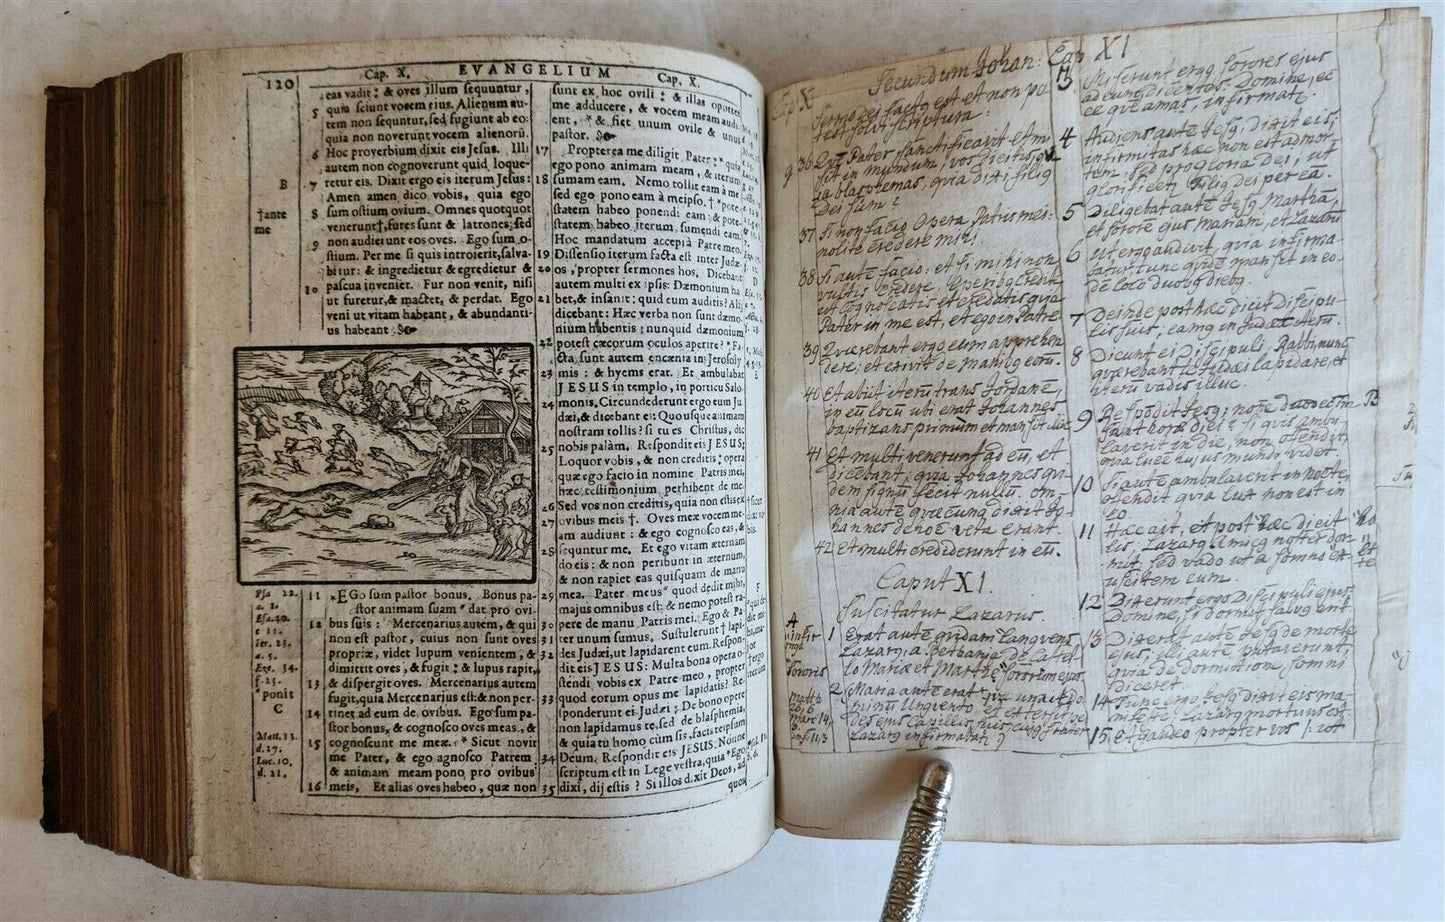 120
Cap. X. EVANGELIUM Cap. X.
eas vadit: & oves illum sequuntur,
5 quia sciunt vocem eius. Alienum au-
tem non sequntur, sed fugiunt ab eo:
quia non noverunt vocem alienorū.
6 Hoc proverbium dixit eis Jesus. Illi
autem non cognoverunt quid loque-
B 7 retur eis. Dixit ergo eis iterum Jesus:
Amen amen dico vobis, quia ego
†ante 8 sum ostium ovium. Omnes quotquot
me venerunt†, fures sunt & latrones; sed
9 non audierunt eos oves. Ego sum o-
stium. Per me si quis introierit, salva-
bitur: & ingredietur & egredietur &
10 pascua inveniet. Fur non venit, nisi
ut furetur, & mactet, & perdat. Ego
veni ut vitam habeant, & abundanti-
us habeant.
Psa. 22.
a. 1.
Esa. 40.
c. 11.
Ier. 23.
a. 5.
Eze. 34.
f. 23.
*ponit
C
Matt. 11.
d. 27.
Luc. 10.
d. 21.
11 *EGo sum pastor bonus. Bonus pa-
stor animam suam* dat pro ovi-
12 bus suis: Mercenarius autem, & qui
non est pastor, cuius non sunt oves
propriæ, videt lupum venientem, &
dimittit oves, & fugit: & lupus rapit,
13 & dispergit oves. Mercenarius autem
fugit, quia Mercenarius est: & non per-
14 tinet ad eum de ovibus. Ego sum pa-
stor bonus, & cognosco oves meas, &
15 cognoscunt me meæ. * Sicut novit
me Pater, & ego agnosco Patrem
& animam meam pono pro ovibus
16 meis, Et alias oves habeo, quæ non
sunt ex hoc ovili: & illas oportet
me adducere, & vocem meam audi-
ent, * & fiet unum ovile & unus
pastor.
17 Propterea me diligit Pater: * quia
ego pono animam meam, & iterum
18 sumam eam. Nemo tollit eam à me
sed ego pono eam à meipso. † *pote-
statem habeo ponendi eam: & pote-
statem habeo iterum sumendi eam.
Hoc mandatum accepi à Patre meo.
19 Dissensio iterum facta est inter Judæ-
20 os, propter sermones hos. Dicebant
autem multi ex ipsis: Dæmonium ha
21 bet, & insanit: quid eum auditis? Ali
dicebant: Hæc verba non sunt dæmo-
nium habentis: nunquid dæmonium
22 potest cæcorum oculos aperire? * Fa-
cta sunt autem encænia in Jerosoly
23 mis: & hyems erat. Et ambulabat
JESUS in templo, in porticu Salo-
24 monis. Circundederunt ergo eum Ju
dæi, & dicebant ei: Quousque animam
nostram tollis? si tu es Christus, dic
25 nobis palàm. Respondit eis JESUS:
Loquor vobis, & non creditis: opera
quæ ego facio in nomine Patris mei,
hæc testimonium perhibent de me
26 Sed vos non creditis, quia non estis ex
27 ovibus meis †. Oves meæ vocem me-
am audiunt: & ego cognosco eas, &
28 sequntur me. Et ego vitam æternam
do eis: & non peribunt in æternum,
& non rapiet eas quisquam de manu
29 mea. Pater meus* quod dedit mihi,
majus omnibus est: & nemo potest ra-
30 pere de manu Patris mei. Ego & Pa-
31 ter unum sumus. Sustulerunt † lapi-
32 des Judæi, ut lapidarent eum. Respon-
dit eis JESUS: Multa bona opera o-
stendi vobis ex Patre meo, propter
33 quod eorum opus me lapidatis? Re-
sponderunt ei Judæi: De bono opere
non lapidamus te, sed de blasphemia,
& quia tu homo cùm sis, facis teipsum
34 Deum. Respondit eis JESUS. Nónne
scriptum est in Lege vestra, quia *Ego
35 dixi, dij estis? Si illos dixit Deos, ad
quos
Cap X Secundum Johan: Cap XI
Sermo dei factus est et non po
test solvi scriptura:
36 Quē Pater sanctificavit et mi-
sit in mundum, vos dicitis, quia
blasphemas, quia dixi filiꝰ
Dei sum?
37 Si non facio Opera Patris mei:
nolite credere mihi
38 Si autē facio: et si mihi non
vultis credere, Operibꝰ credite
ut cognoscatis et credatis quia
Pater in me est, et ego in Patre
39 Quærebant ergo eum apprehen
dere; et exivit de manibꝰ eorū.
40 Et abiit iterū trans Jordanē,
in eū locū ubi erat Johannes
baptizans primum et mansit illic
41 Et multi venerunt ad eū, et
dicebant, quia Johannes qui
dem signū fecit nullū. om
nia autē quæcung dixit Jo-
hannes de hoc vera erant
42 Et multi crediderunt in eū.
Caput XI.
Suscitatur Lazarus.
A
1 Erat autē quidam languens
Lazarꝰ, a Bethania de Castel
lo Mariæ et Marthæ sororis ejus
sororis
2 Maria autē erat quæ unxit Do
minū Unguento, et extersit pe
des ejus capillis, cujus frater
Lazarꝰ infirmabatur
3 Miserunt ergo sorores ejus
ad eum dicentes. Domine, ec
ce quē amas, infirmatꝰ.
4 Audiens autē Jesꝰ, dixit eis:
infirmitas hæc non est ad mor-
tem, sed pro gloria Dei, ut
glorificetꝰ, filiꝰ dei per eā.
5 Diligebat autē Jesꝰ Marthā,
et sororē ejus Mariam, et Lazarū
6 ut ergo audivit, quia infirma-
batur tunc quidē mansit in eo-
dē loco duobꝰ diebꝰ.
7 Deinde post hæc dicit discipu-
lis suis, eamꝰ in Judæā iterū.
8 Dicunt ei discipuli, Rabbi nunc
quærebant te Judæi lapidare, et
iterū vadis illuc.
9 Respōdit Jesꝰ, nōne duodecim B
sunt horæ diei? si quis ambu
laverit in die, non offendit,
quia lucē hujus mundi videt
10 Si autē ambulaverit in nocte,
offendit quia lux non est in
eo.
11 Hæc ait, et post hæc dicit
eis, Lazarꝰ amicꝰ noster dor-
mit, sed vado ut a somno ex-
citem eum.
12 Dixerunt ergo Discipuli ejus
Domine, si dormit, salvꝰ erit
13 Dixerat autē Jesꝰ de morte
ejus, illi autē putaverunt,
quia de dormitione somni
diceret
14 Tunc ergo Jesꝰ dixit eis ma-
nifestè Lazarꝰ mortuus est.
15 Et gaudeo propter vos